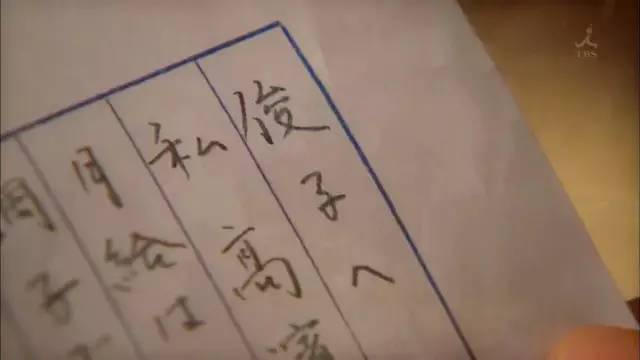 俊子へ
私 高
月給は
調子
TBS